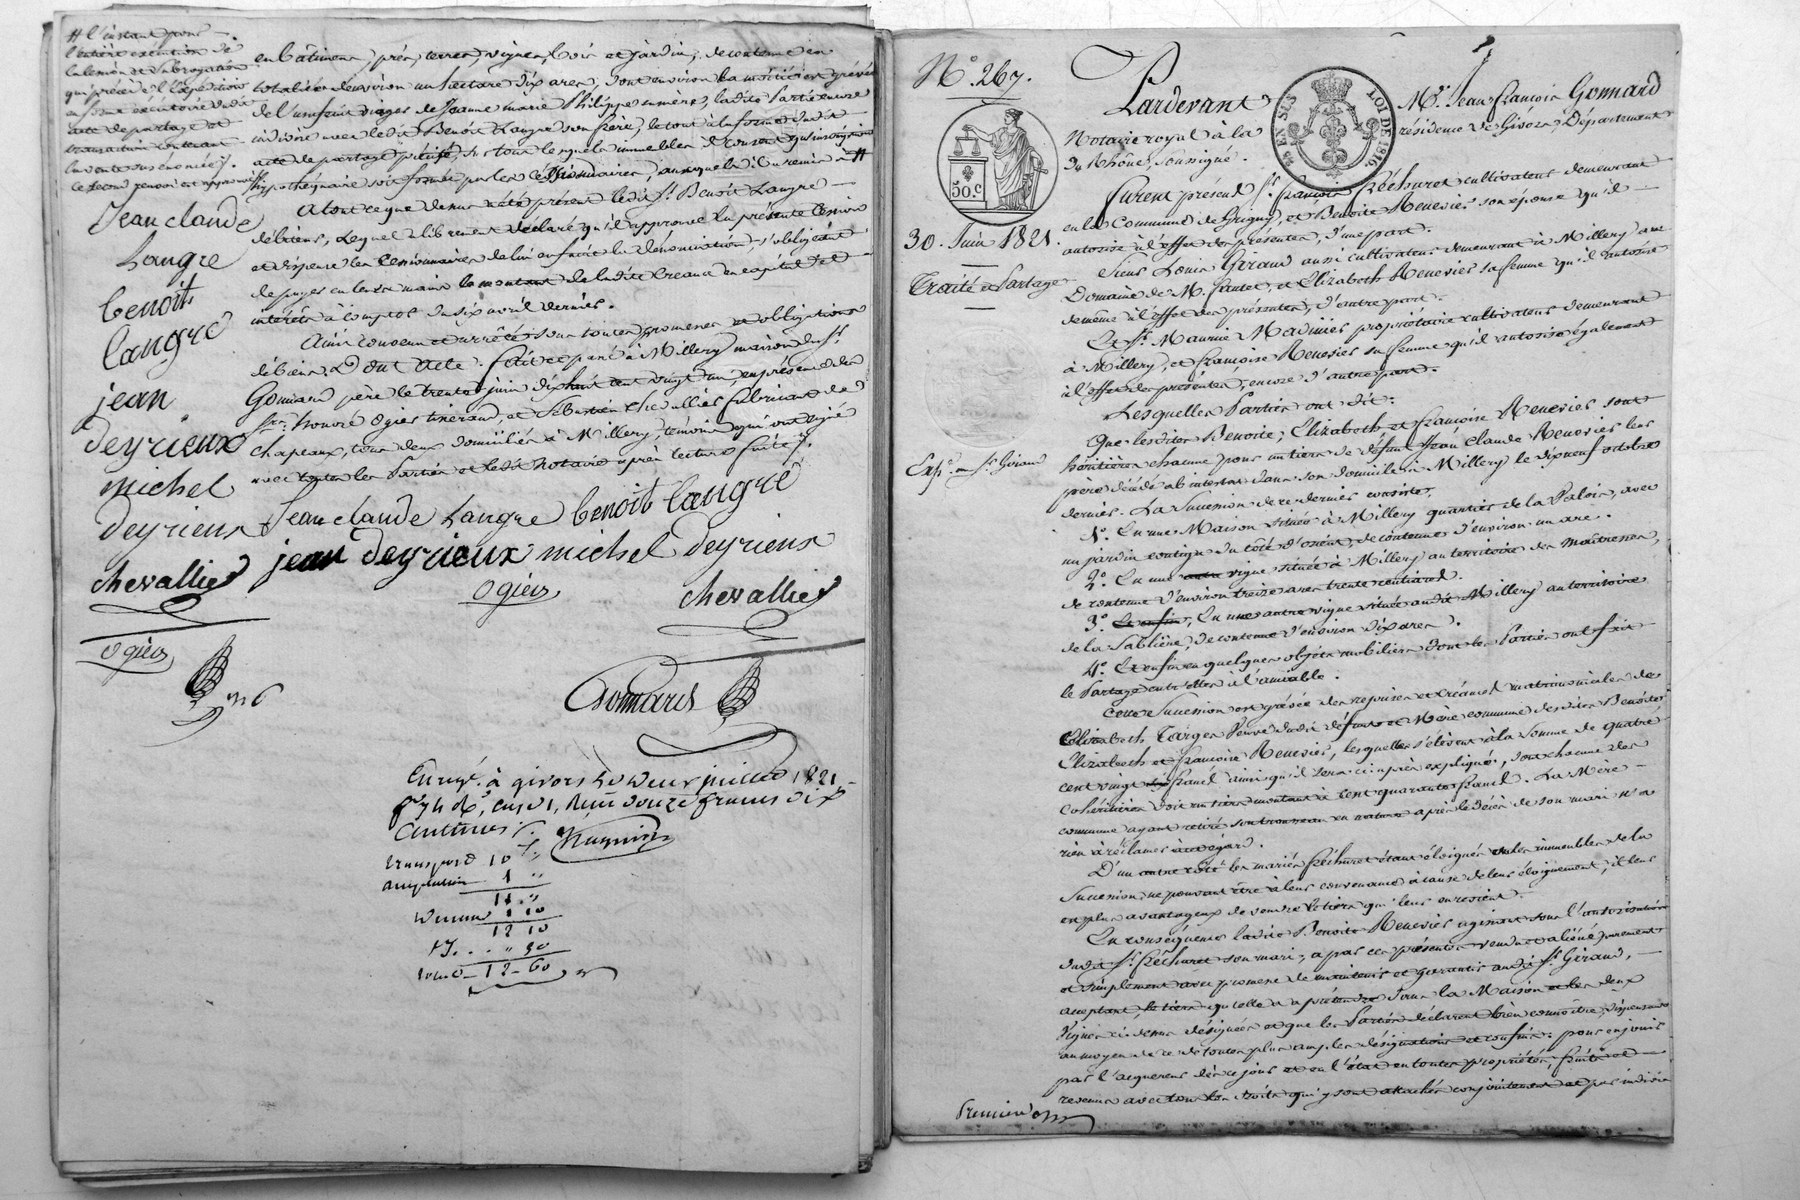 # l'instant pour
l'entière exécution de
la cession et subrogation
qui précède l'expédition
en forme exécutoire dudit
acte de partage et
transaction contenant
la vente susénoncée ./.
le second renvoi est approuvé ./.
en bâtiment, prés, terres, vignes, bois et jardin, de contenue en
totalité d'environ un hectare dix ares, dont environ la moitié est grevée
de l'usufruit viager de Jeanne marie Philippe sa mère, ladite Partie encore
indivise avec ledit Benoît Langre son frère, le tout à la forme dudit
acte de partage précité, sur tous lesquels immeubles il consent qu'inscription
hypothécaire soit formée par les Cessionnaires, auxquels il a remis à #
A tout ce que dessus a été présent ledit Sr. Benoît Langre —
débiteur, Lequel a librement déclaré qu'il approuve la présente Cession
et dispense les Cessionnaires de lui en faire la dénonciation, s'obligeant
de payer en leurs mains le montant de ladite Créance en capital et
intérêts à compter du six avril dernier.
Ainsi convenu et arrêté sous toutes promesses et obligations
de biens, Dont Acte. Fait et passé à Millery maison du Sr.
Gonnard père le trente juin dix huit cent vingt un, en présence des
Srs. honoré Ogier tisserand, et Sébastien Chevallier fabricant de
chapeaux, tous deux domiciliés à Millery, témoins qui ont signé
avec toutes les Parties et ledit Notaire après lecture faite ./.
Jean claude
Langre
benoit
langre
jean
deyrieux
michel
deyrieux
chevallier
Ogier
Jean claude Langre benoit langre
jean deyrieux michel deyrieux
Ogier chevallier
Gonnard
Enregé. à givors le deux juillet 1821
fo. 74 Ro., cases 1, Reçu douze francs dix
Centimes ./.
transport 10 "
ampliation 1 "
11 "
Décime 1 10
12 10
" 50
total 12 60
No. 267.
50. c
30. Juin 1821.
Traité et Partage
Expn. au Sr. Giraud
25 EN SUS
LOI DE 1816
Pardevant Me. Jean François Gonnard
Notaire royal à la résidence de Givors, Département
du Rhône, soussigné.
Furent présens Sr. François Fréchuret cultivateur demeurant
en la Commune de Grigny, et Benoîte Reneviés son épouse qu'il —
autorise à l'effet des présentes, d'une part.
Sieur Louis Giraud aussi cultivateur demeurant à Millery au
Domaine de M. Santet, et Elizabeth Reneviés sa femme qu'il autorise
de même à l'effet des présentes, d'autre part.
Et Sr. Maurice Madinier propriétaire cultivateur demeurant
à Millery, et Françoise Reneviés sa femme qu'il autorise également
à l'effet des présentes, encore d'autre part.
Lesquelles Parties ont dit:
Que lesdites Benoîte, Elizabeth et Françoise Reneviés sont
héritières chacune pour un tiers de défunt Jean Claude Reneviés leur
père décédé ab intestat dans son domicile à Millery le dix neuf octobre
dernier. La Succession de ce dernier consiste,
1o. En une Maison située à Millery quartier de la Paloin, avec
un jardin contigu du côté d'orient, de contenue d'environ un are.
2o. En une vigne située à Millery au territoire des Maîtresses,
de contenue d'environ treize ares trente centiares.
3o. En une autre vigne située audit Millery au territoire
de la Sablière, de contenue d'environ dix ares.
4o. Et enfin en quelques objets mobiliers dont les Parties ont fait
le Partage entr'elles à l'amiable.
Cette Succession est grevée des reprises et créances matrimoniales de
Elizabeth Targe Veuve dudit défunt et Mère commune desdites Benoîte,
Elizabeth et Françoise Reneviés, lesquelles s'élèvent à la Somme de quatre
cent vingt francs ainsi qu'il sera ci après expliqué, dont chacune des
cohéritières doit un tiers montant à cent quarante francs. La Mère —
commune ayant retiré son trousseau en nature après le décès de son mari n'a
rien à réclamer à cet égard.
D'un autre côté les mariés Fréchuret étant éloignés des immeubles de la
Succession, ne pouvant être à leur convenance à cause de leur éloignement, il leur
est plus avantageux de vendre le tiers qui leur en revient.
En conséquence ladite De. Benoîte Reneviés agissant sous l'autorisation
dudit Sr. Fréchuret son mari, a par ces présentes vendu et aliéné purement
et simplement avec promesse de maintenir et garantir audit Sr. Giraud, —
acceptant, le tiers qu'elle a à prétendre dans la Maison et les deux
Vignes ci dessus désignées et que les Parties déclarent bien connoître, dispensant
au moyen de ce de toutes plus amples désignations et confins. pour en jouir
par l'acquéreur dès ce jour et en l'état en toute propriété, fruits et —
revenus avec tous les droits qui y sont attachés conjointement et par indivis
Premier